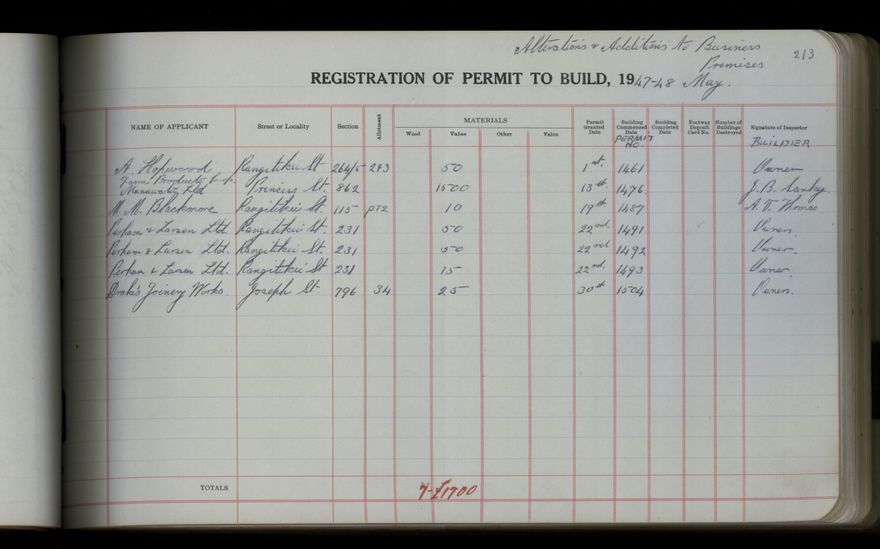 Alterations & Additions to Business
Premises
213
REGISTRATION OF PERMIT TO BUILD, 1947-48 May.
NAME OF APPLICANT Street or Locality Section Allotment MATERIALS Wood Value Other Value Permit Granted Date Building Commenced Date PERMIT NO. Building Completed Date Footway Deposit Card No. Number of Buildings Destroyed Signature of Inspector BUILDER
A. Hopwood Rangitikei St 264/5 2&3 50 1st 1461 Owner
Farm Products Co-op
Manawatu Ltd Princess St. 862 1500 13th 1476. J. B. Sankey
M. M. Blackmore Rangitikei St. 115 pt2 10 19th 1487 A. V. Thomas.
Perham & Larsen Ltd. Rangitikei St. 231 50 22nd. 1491 Owners.
Perham & Larsen Ltd. Rangitikei St. 231 50 22nd 1492 Owner.
Perham & Larsen Ltd. Rangitikei St 231 15 22nd. 1493 Owner.
Drake's Joinery Works. Joseph St. 796 34 25 30th 1504 Owners.
TOTALS 7-£1700